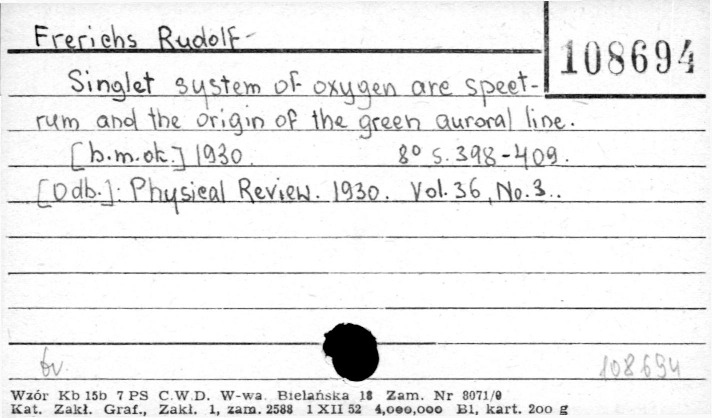 Frerichs Rudolf-
108694
Singlet system of oxygen are spect-
rum and the origin of the green auroral line.
[b.m.ok.] 1930. 8° s. 398-409.
[Odb.]: Physical Review. 1930. Vol. 36, No. 3..
bv. 108694
Wzór Kb 15b 7 PS C.W.D. W-wa. Bielańska 18 Zam. Nr 8071/0
Kat. Zakł. Graf., Zakł. 1, zam. 2588 1 XII 52 4,000,000 B1, kart. 200 g